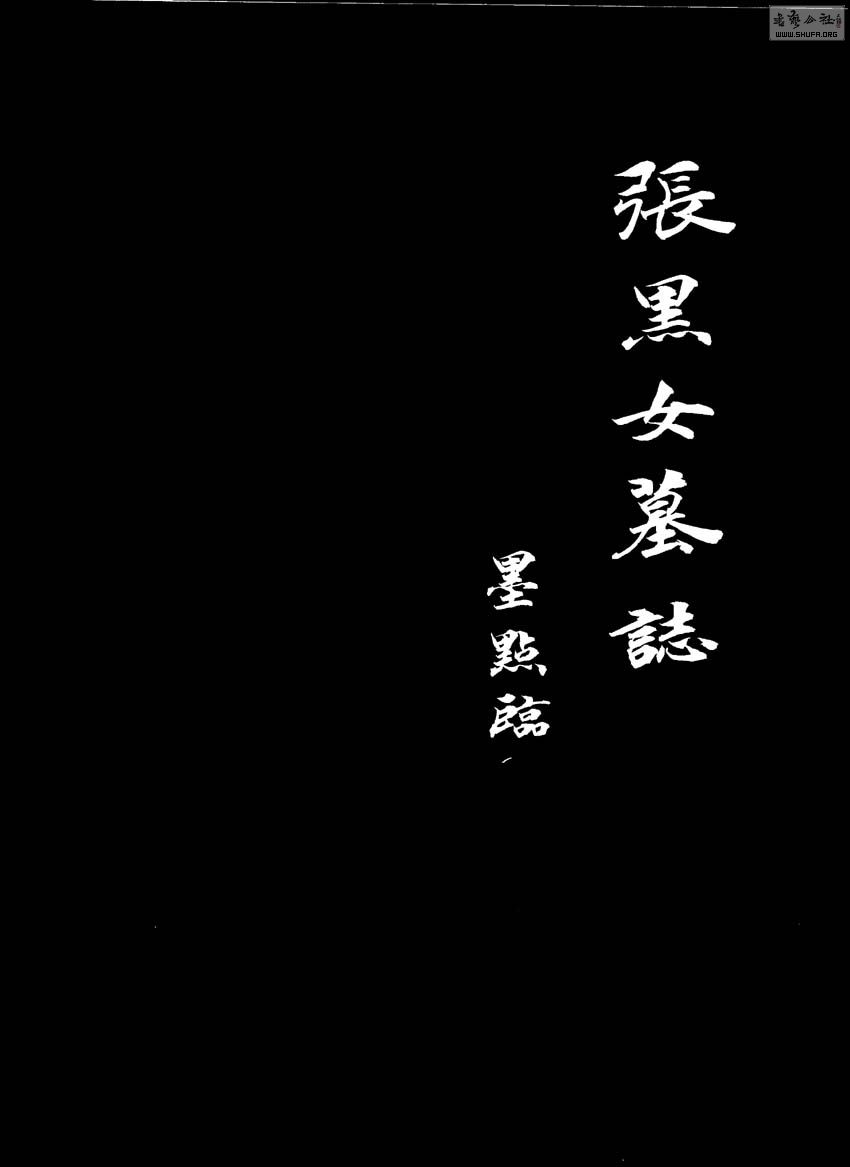 張黒女墓誌
墨點臨
書藝公社
WWW.SHUFA.ORG